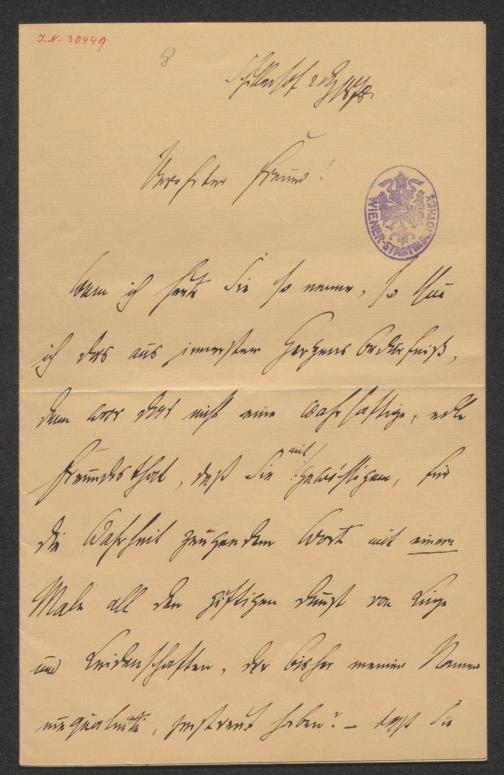 I.N. 30449
Verehrter Freund!
WIENER-STADTBIBLIOTHEK
Wenn ich heute Sie so nenne, so thue
ich das aus innerstem Herzensbedürfniß,
denn war das nicht eine wahrhaftige, edle
Freundesthat, daß Sie mit gewichtigem, für
die Wahrheit zeugendem Wort mit einem
Male all den giftigen Dunst von Lüge
und Leidenschaften, der bisher meinen Namen
umqualmte, zerstreut haben? – daß Sie